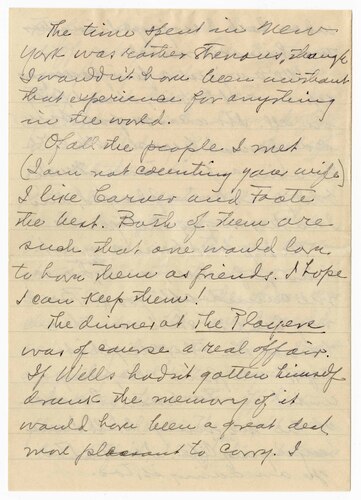 The time spent in New
York was rather strenous, though
I wouldn't have been without
that experience for anything
in the world.
Of all the people I met
(I am not counting your wife)
I like Carver and Foote
the best. Both of them are
such that one would love
to have them as friends. I hope
I can keep them!
The dinner at The Players
was of course a real affair.
If Wells hadn't gotten himself
drunk the memory of it
would have been a great deal
more pleasant to carry. I